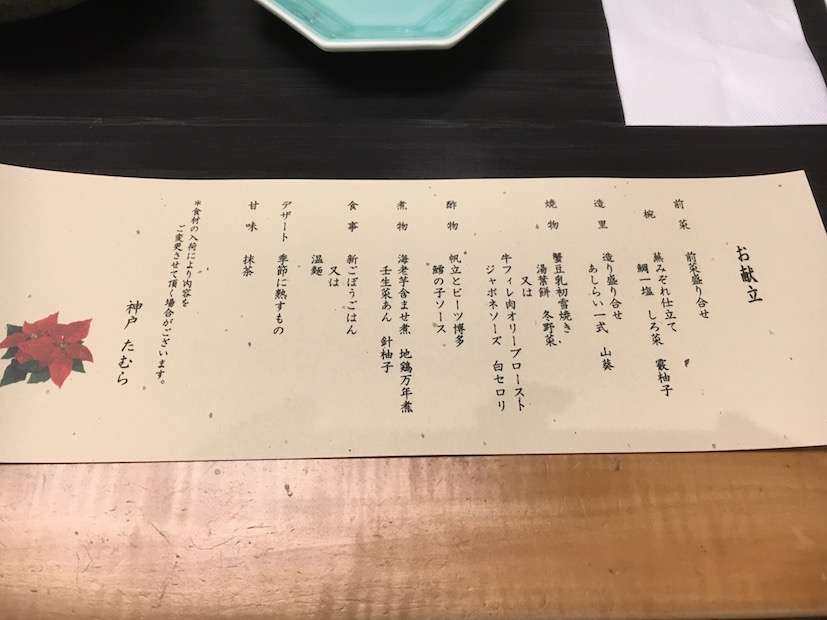 お献立
前菜 前菜盛り合せ
椀 蕪みぞれ仕立て
鯛一塩 しろ菜 霰柚子
造里 造り盛り合せ
あしらい一式 山葵
焼物 蟹豆乳初雪焼き
湯葉餅 冬野菜
又は
牛フィレ肉オリーブロースト
ジャポネソーズ 白セロリ
酢物 帆立とビーツ博多
鱈の子ソース
煮物 海老芋含ませ煮 地鶏万年煮
壬生菜あん 針柚子
食事 新ごぼうごはん
又は
温麺
デザート 季節に熟すもの
甘味 抹茶
*食材の入荷により内容を
ご変更させて頂く場合がございます。
神戸 たむら